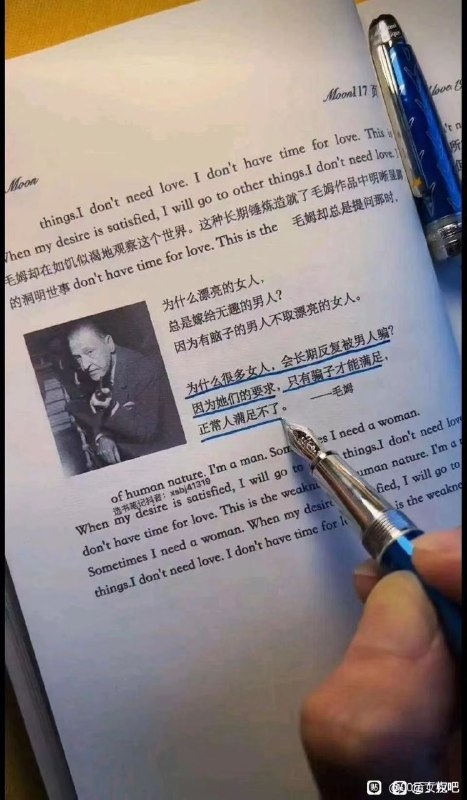 Moon117 页
Moon
things.I don't need love. I don't have time for love. This is
When my desire is satisfied, I will go to other things.I don't need love.
毛姆却在如饥似渴地观察这个世界。这种长期锤炼造就了毛姆作品中明晰显露
的洞明世事 don't have time for love. This is the 毛姆却总是提问那时,
为什么漂亮的女人,
总是嫁给无趣的男人?
因为有脑子的男人不取漂亮的女人。
为什么很多女人, 会长期反复被男人骗?
因为她们的要求, 只有骗子才能满足,
正常人满足不了。 ——毛姆
of human nature. I'm a man. Sometimes I need a woman.
选书笔记抖音: xsbj41319
When my desire is satisfied, I will go to things.I don't need love
don't have time for love. This is the weakn human nature. I'm a
Sometimes I need a woman. When my desire fied, I will go to
things.I don't need love. I don't have time for is the weakne